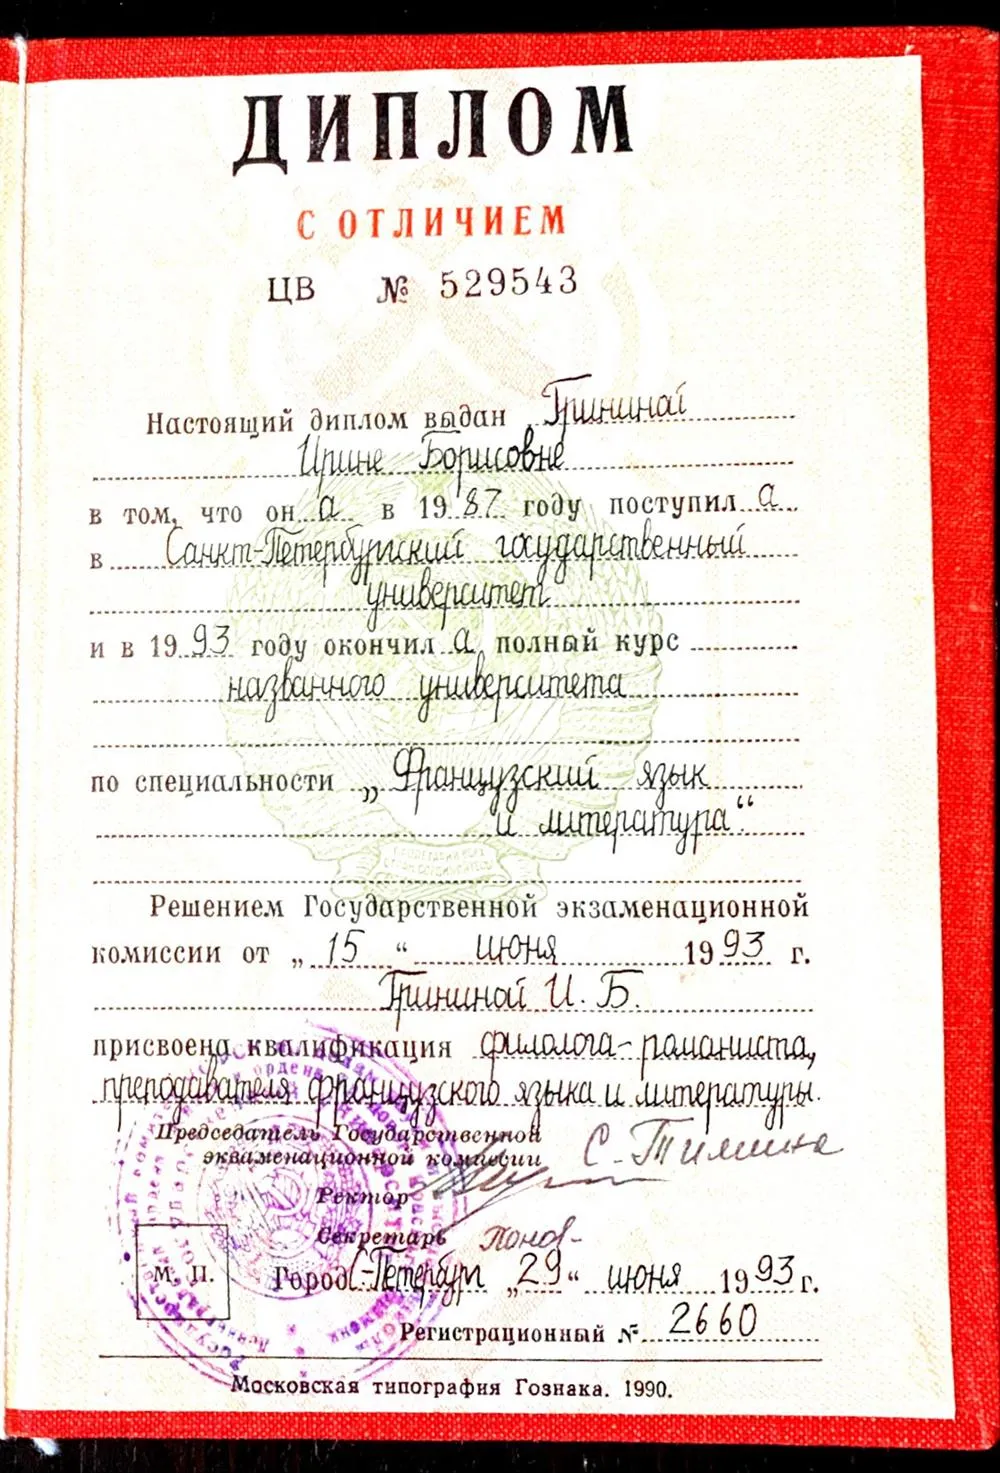 ДИПЛОМ
С ОТЛИЧИЕМ
ЦВ № 529543
Настоящий диплом выдан Грининой
Ирине Борисовне
в том, что он а в 1987 году поступил а
в Санкт-Петербургский государственный
университет
и в 1993 году окончил а полный курс
названного университета
по специальности „Французский язык
и литература“
Решением Государственной экзаменационной
комиссии от „15“ июня 1993 г.
Грининой И. Б.
присвоена квалификация филолога-романиста,
преподавателя французского языка и литературы.
Председатель Государственной
экзаменационной комиссии
Ректор
Секретарь
М. П.
Город С-Петербург „29“ июня 1993 г.
Регистрационный № 2660
Московская типография Гознака. 1990.